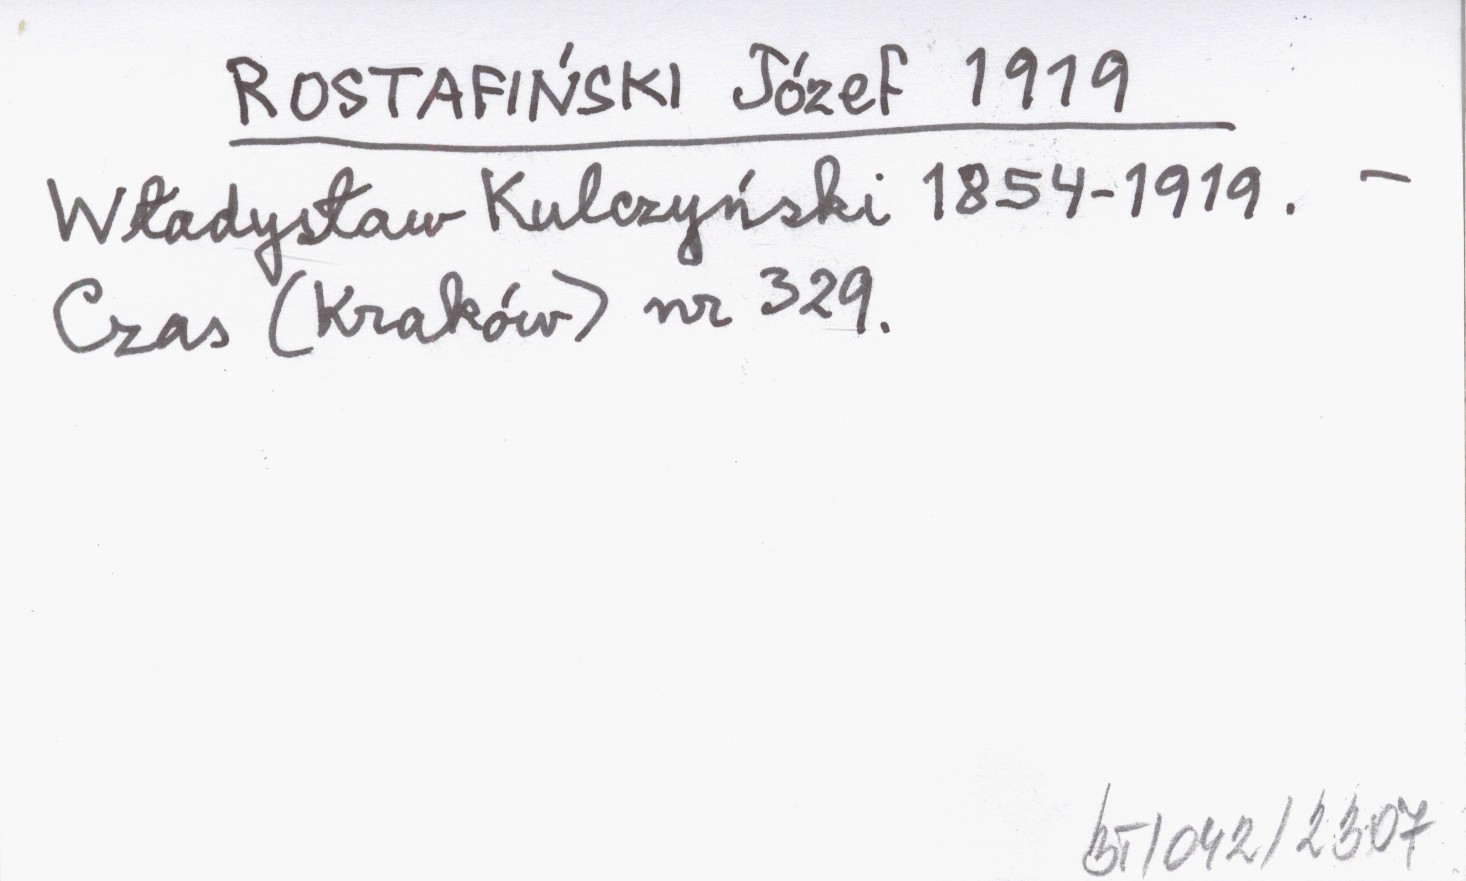 ROSTAFIŃSKI Józef 1919
Władysław Kulczyński 1854-1919. –
Czas (Kraków) nr 329.
/042/2307